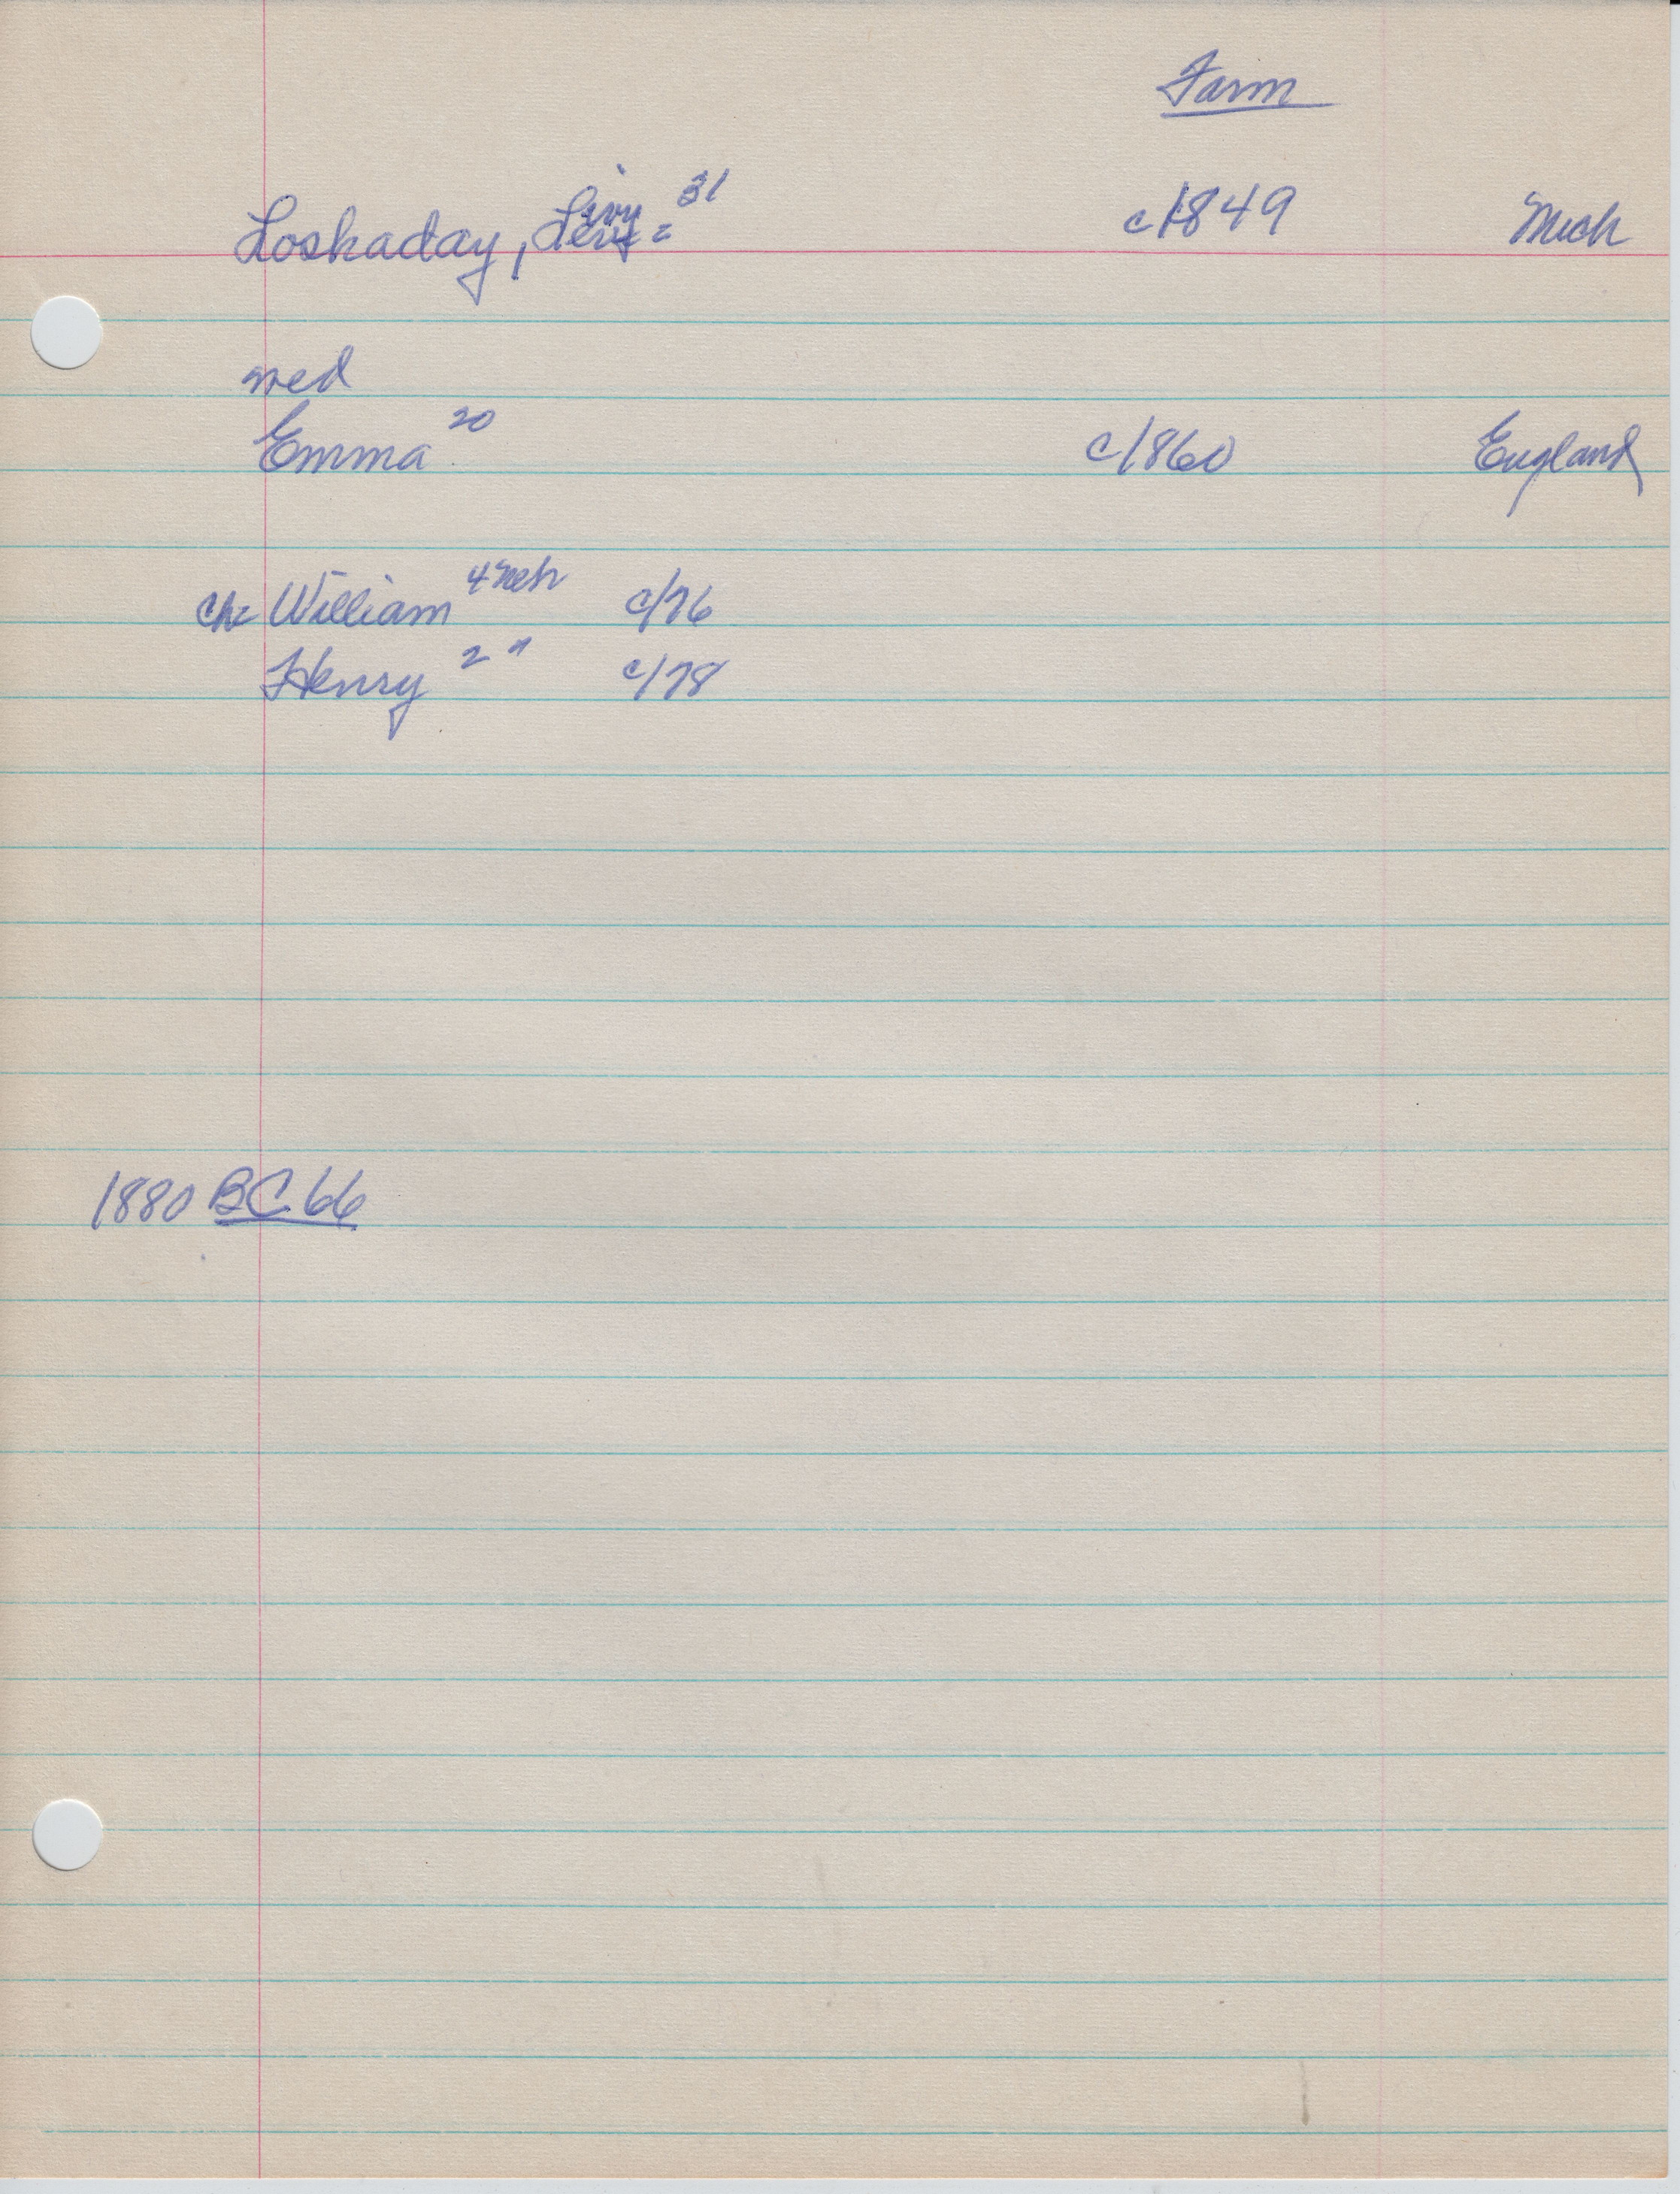 Farm
Loskaday, Livy = 31 c1849 Mich
wed
Emma 20 c/860 England
ch= William 4 Neb c/76
Henry 2 " c/78
1880 BC 66